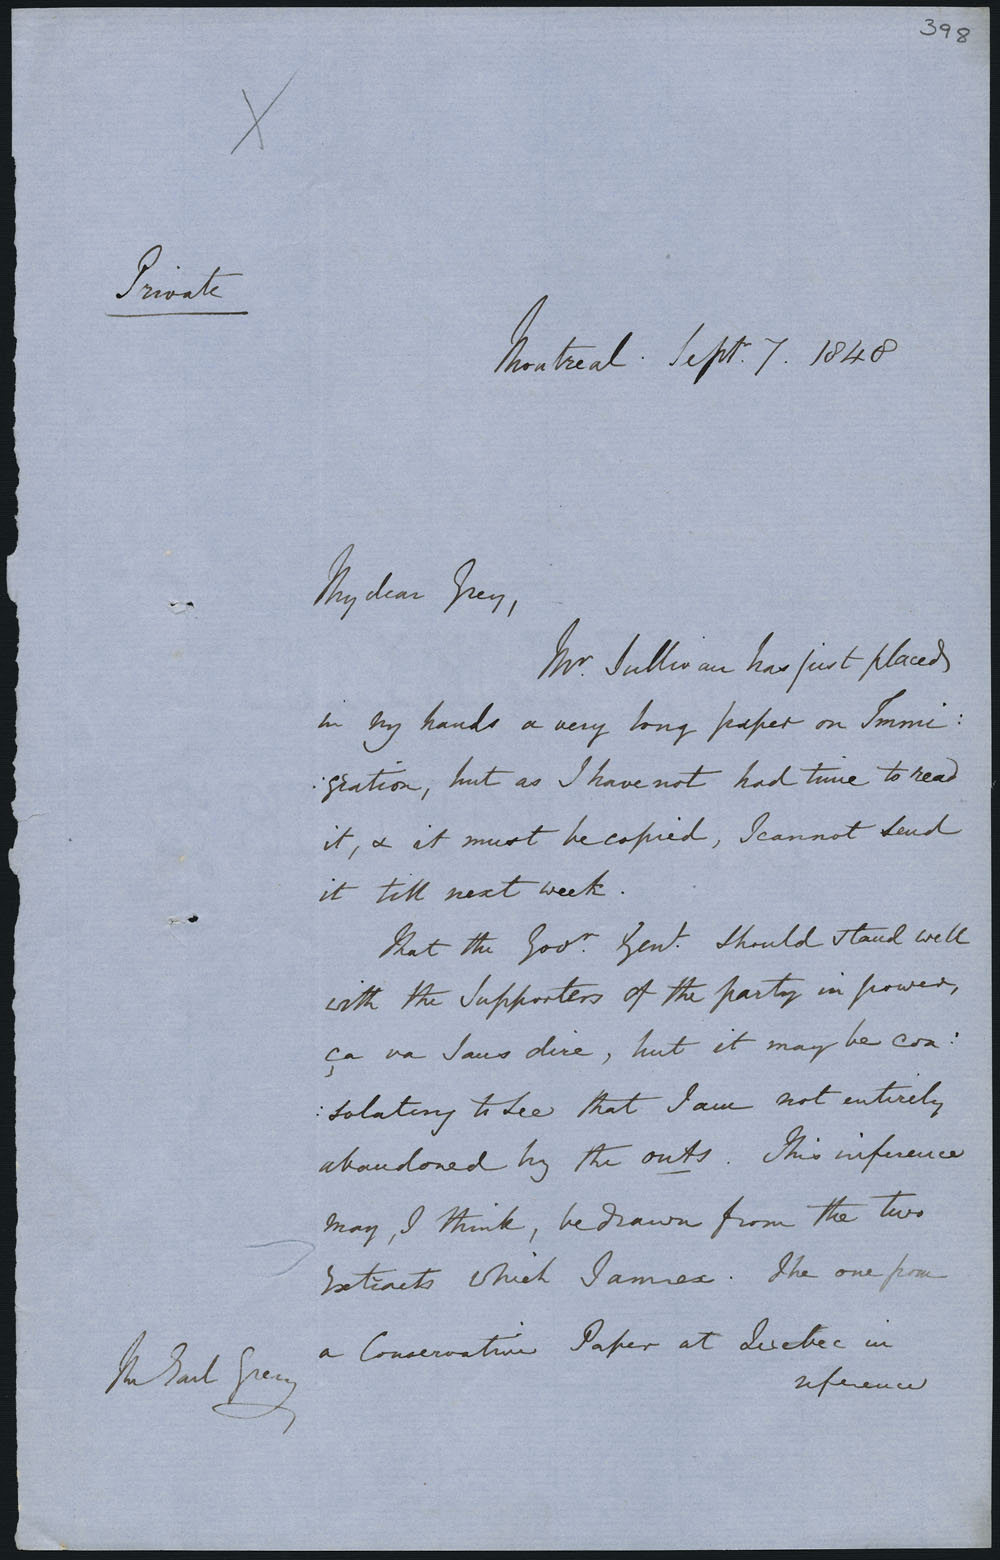 398
X
Private
Montreal. Septr. 7. 1848
My dear Grey,
Mr. Sullivan has just placed
in my hands a very long paper on Immi:
:gration, but as I have not had time to read
it, & it must be copied, I cannot send
it till next week.
That the Govr. Genl. should stand well
with the Supporters of the party in power,
ça va sans dire, but it may be con:
:solatory to see that I am not entirely
abandoned by the outs. This inference
may, I think, be drawn from the two
Extracts which I annex. The one from
a Conservative Paper at Quebec in
reference
The Earl Grey